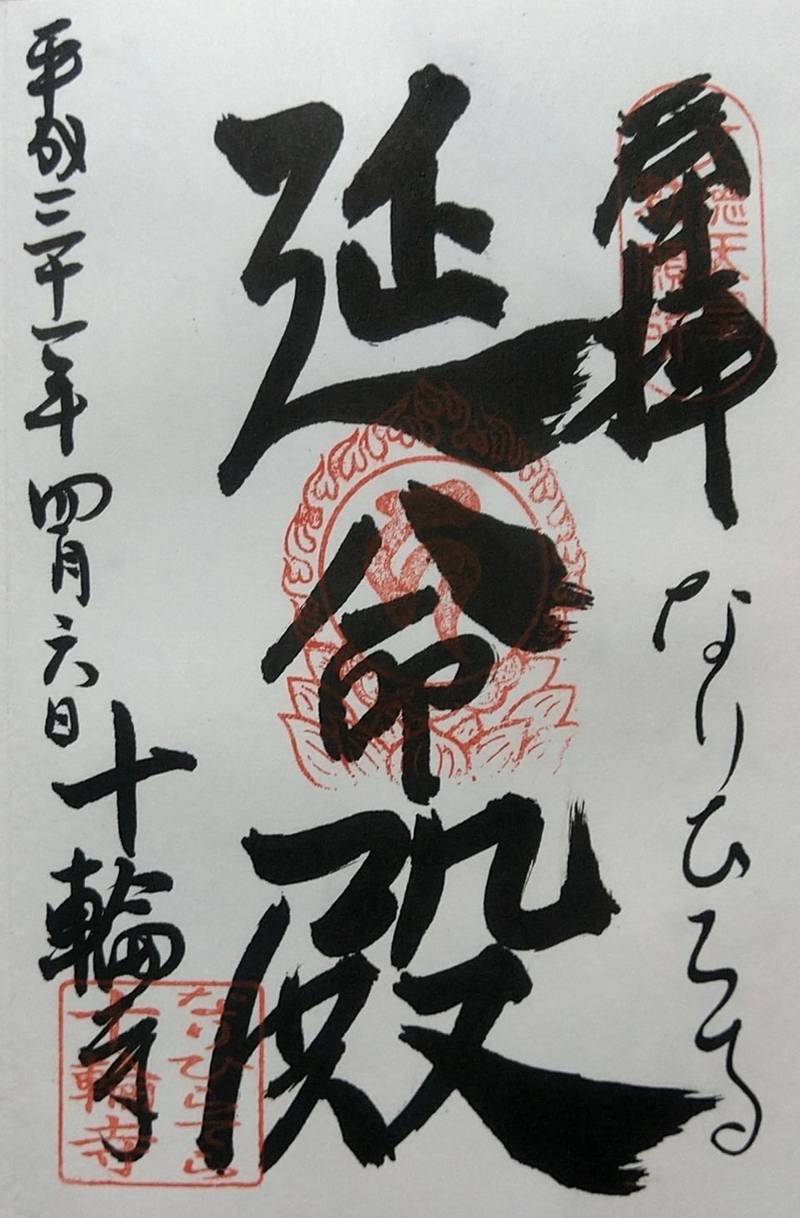 奉拝
なりひら寺
延命殿
平成三十一年四月六日
十輪寺
なりひら寺
十輪寺